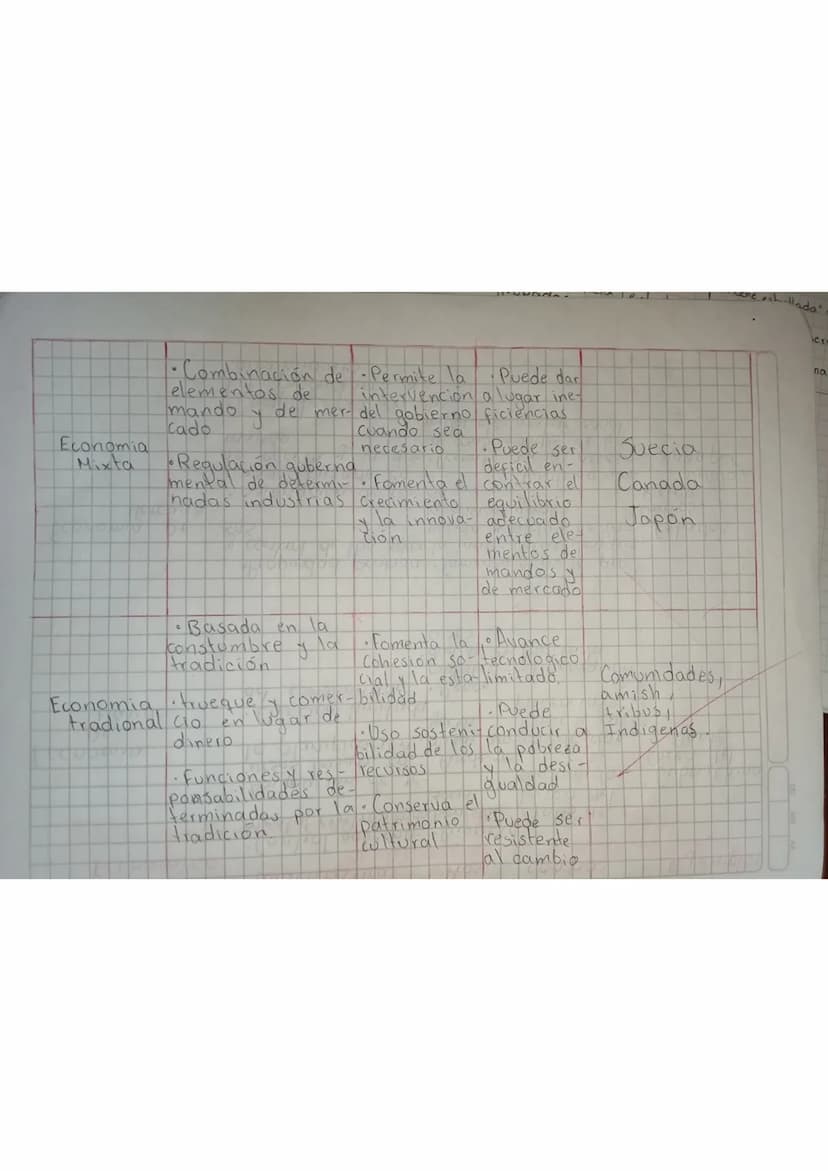 Economia
Mixta
• Combinación de
elementos de
mando y de mer-
cado
• Regulación guberna
mental de determi-
nadas industrias
• Permite la
intervención
del gobierno
cuando sea
necesario
• Fomenta el
crecimiento
y la innova-
ción
• Puede dar
a lugar ine-
ficiencias
• Puede ser
deficil en-
contrar el
equilibrio
adecuado
entre ele-
mentos de
mandos y
de mercado
Suecia
Canada
Japón
Economia
tradional
• Basada en la
constumbre y la
tradición
• trueque y comer-
cio en lugar de
dinero
• Funciones y res-
ponsabilidades de-
terminadas por la
tradición
• Fomenta la
cohesion so-
cial y la esta-
bilidad
• Uso sosteni-
bilidad de los
recursos
• Conserva el
patrimonio
cultural
• Avance
tecnologico
limitado.
• Puede
conducir a
la pobreza
y la desi-
gualdad
• Puede ser
resistente
al cambio
Comunidades,
amish,
tribus,
Indigenas.